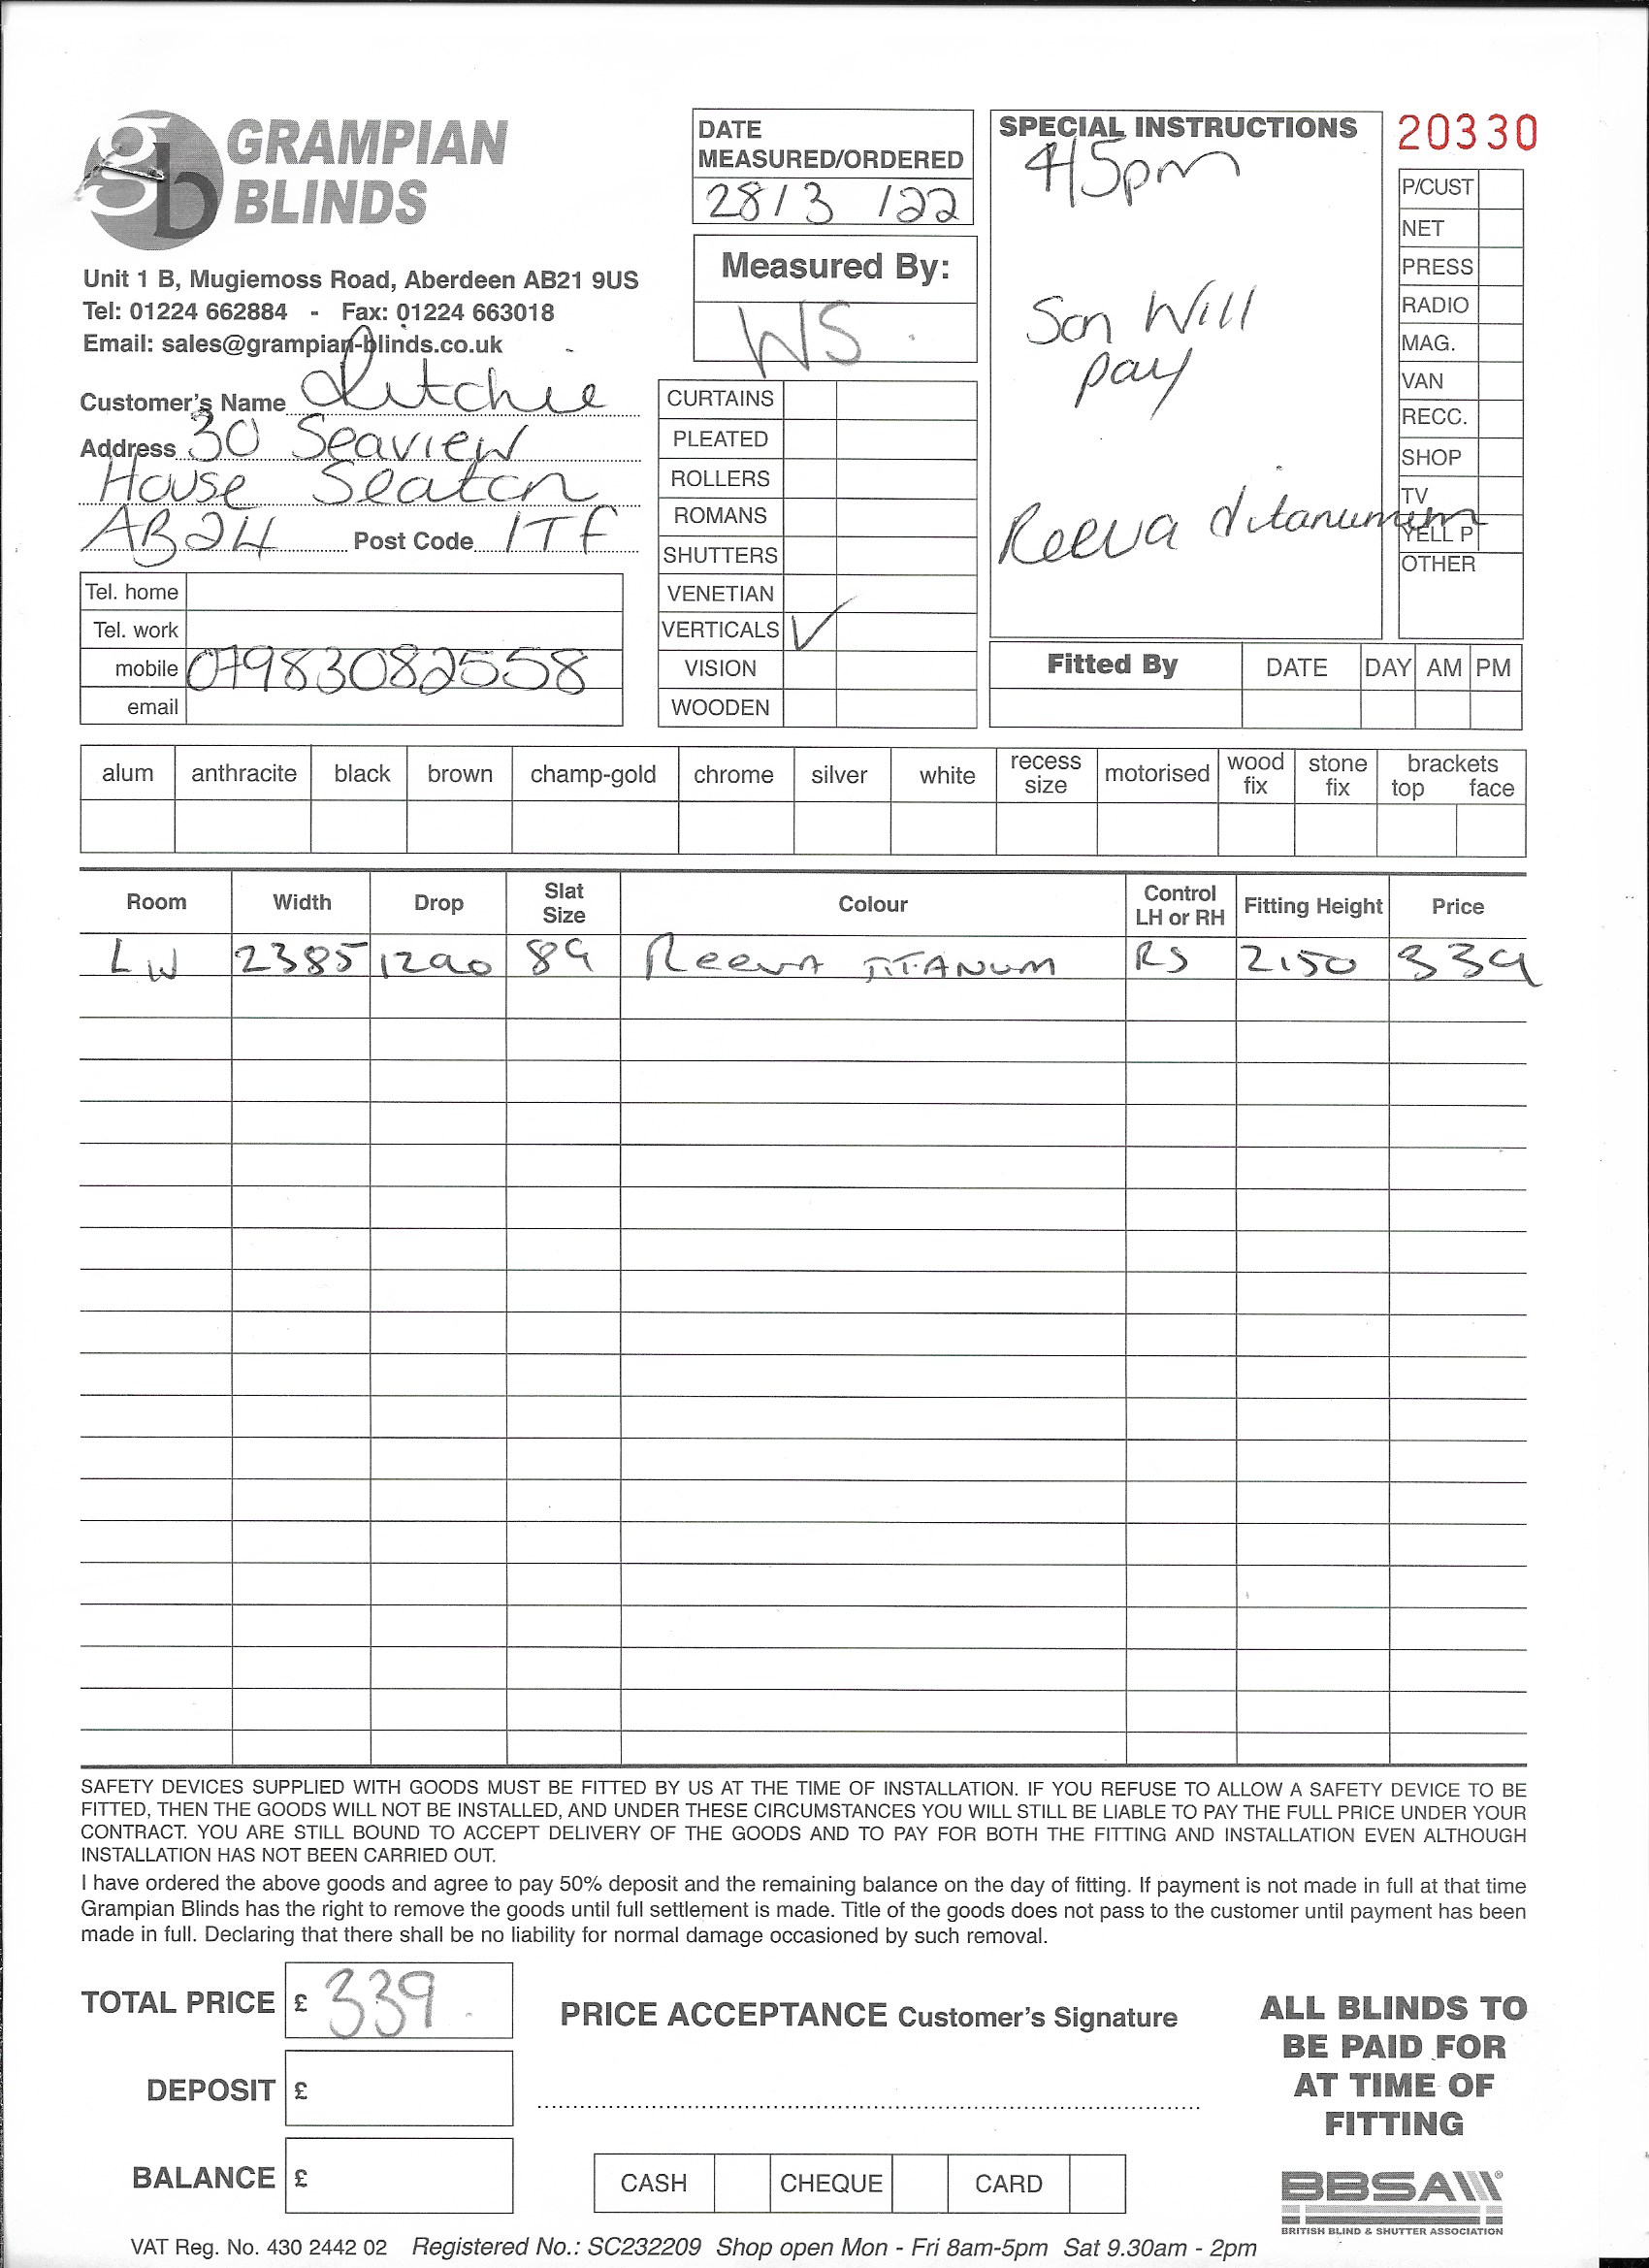 gb GRAMPIAN
BLINDS
Unit 1 B, Mugiemoss Road, Aberdeen AB21 9US
Tel: 01224 662884 - Fax: 01224 663018
Email: sales@grampian-blinds.co.uk
Customer's Name Ritchie
Address 30 Seaview
House Seaton
AB24 Post Code 1TF
Tel. home
Tel. work
mobile 07983082558
email
DATE
MEASURED/ORDERED
28/3/22
Measured By:
WS
CURTAINS
PLEATED
ROLLERS
ROMANS
SHUTTERS
VENETIAN
VERTICALS ✓
VISION
WOODEN
SPECIAL INSTRUCTIONS
4/5pm
Son Will
pay
Reeva titanumum
20330
P/CUST
NET
PRESS
RADIO
MAG.
VAN
RECC.
SHOP
TV
YELL P
OTHER
Fitted By DATE DAY AM PM
alum anthracite black brown champ-gold chrome silver white recess size motorised wood fix stone fix brackets top face
Room Width Drop Slat Size Colour Control LH or RH Fitting Height Price
LW 2385 1290 89 Reeva TITANUM RS 2150 339
SAFETY DEVICES SUPPLIED WITH GOODS MUST BE FITTED BY US AT THE TIME OF INSTALLATION. IF YOU REFUSE TO ALLOW A SAFETY DEVICE TO BE
FITTED, THEN THE GOODS WILL NOT BE INSTALLED, AND UNDER THESE CIRCUMSTANCES YOU WILL STILL BE LIABLE TO PAY THE FULL PRICE UNDER YOUR
CONTRACT. YOU ARE STILL BOUND TO ACCEPT DELIVERY OF THE GOODS AND TO PAY FOR BOTH THE FITTING AND INSTALLATION EVEN ALTHOUGH
INSTALLATION HAS NOT BEEN CARRIED OUT.
I have ordered the above goods and agree to pay 50% deposit and the remaining balance on the day of fitting. If payment is not made in full at that time
Grampian Blinds has the right to remove the goods until full settlement is made. Title of the goods does not pass to the customer until payment has been
made in full. Declaring that there shall be no liability for normal damage occasioned by such removal.
TOTAL PRICE £ 339.
DEPOSIT £
BALANCE £
PRICE ACCEPTANCE Customer's Signature
CASH CHEQUE CARD
ALL BLINDS TO
BE PAID FOR
AT TIME OF
FITTING
BBSA
BRITISH BLIND & SHUTTER ASSOCIATION
VAT Reg. No. 430 2442 02 Registered No.: SC232209 Shop open Mon - Fri 8am-5pm Sat 9.30am - 2pm